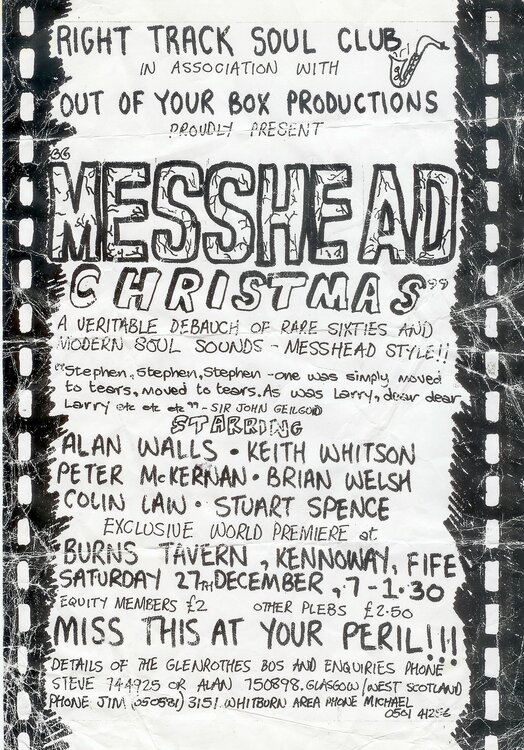 RIGHT TRACK SOUL CLUB
IN ASSOCIATION WITH
OUT OF YOUR BOX PRODUCTIONS
PROUDLY PRESENT
"MESSHEAD
CHRISTMAS"
A VERITABLE DEBAUCH OF RARE SIXTIES AND
MODERN SOUL SOUNDS - MESSHEAD STYLE!!
"Stephen, Stephen, Stephen - one was simply moved
to tears, moved to tears. As was Larry, dear dear
Larry etc etc etc" - SIR JOHN GEILGOD
STARRING
ALAN WALLS · KEITH WHITSON
PETER McKERNAN · BRIAN WELSH
COLIN LAW · STUART SPENCE
EXCLUSIVE WORLD PREMIERE at
BURNS TAVERN, KENNOWAY, FIFE
SATURDAY 27TH DECEMBER, 7-1.30
EQUITY MEMBERS £2 OTHER PLEBS £2.50
MISS THIS AT YOUR PERIL!!!
DETAILS OF THE GLENROTHES BUS AND ENQUIRIES PHONE
STEVE 744925 OR ALAN 750898. GLASGOW/WEST SCOTLAND
PHONE JIM (050581) 3151. WHITBURN AREA PHONE MICHAEL
0501 41256